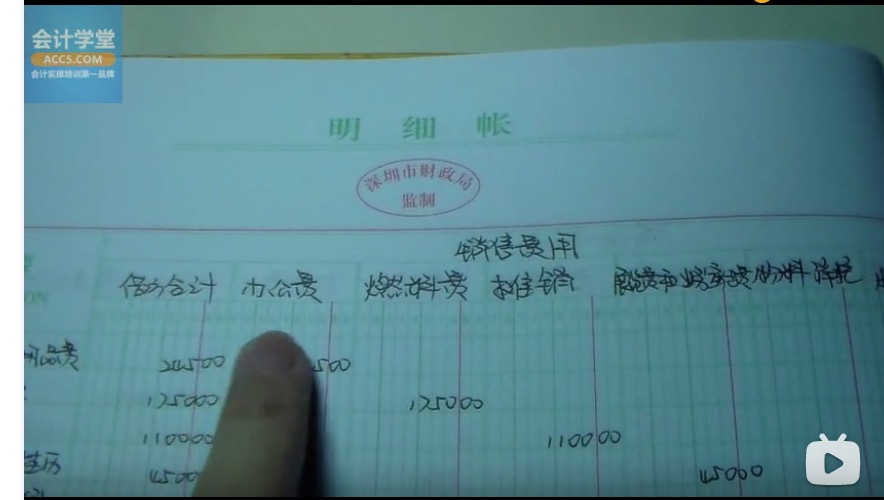 会计学堂
ACC5.COM
会计实操培训第一品牌
明 细 帐
深圳市财政局
监制
销售费用
借方合计 办公费 燃料费 推销 展览费和 物料消耗
品费 24500 500
125000 125000
110000 110000
4500 45000